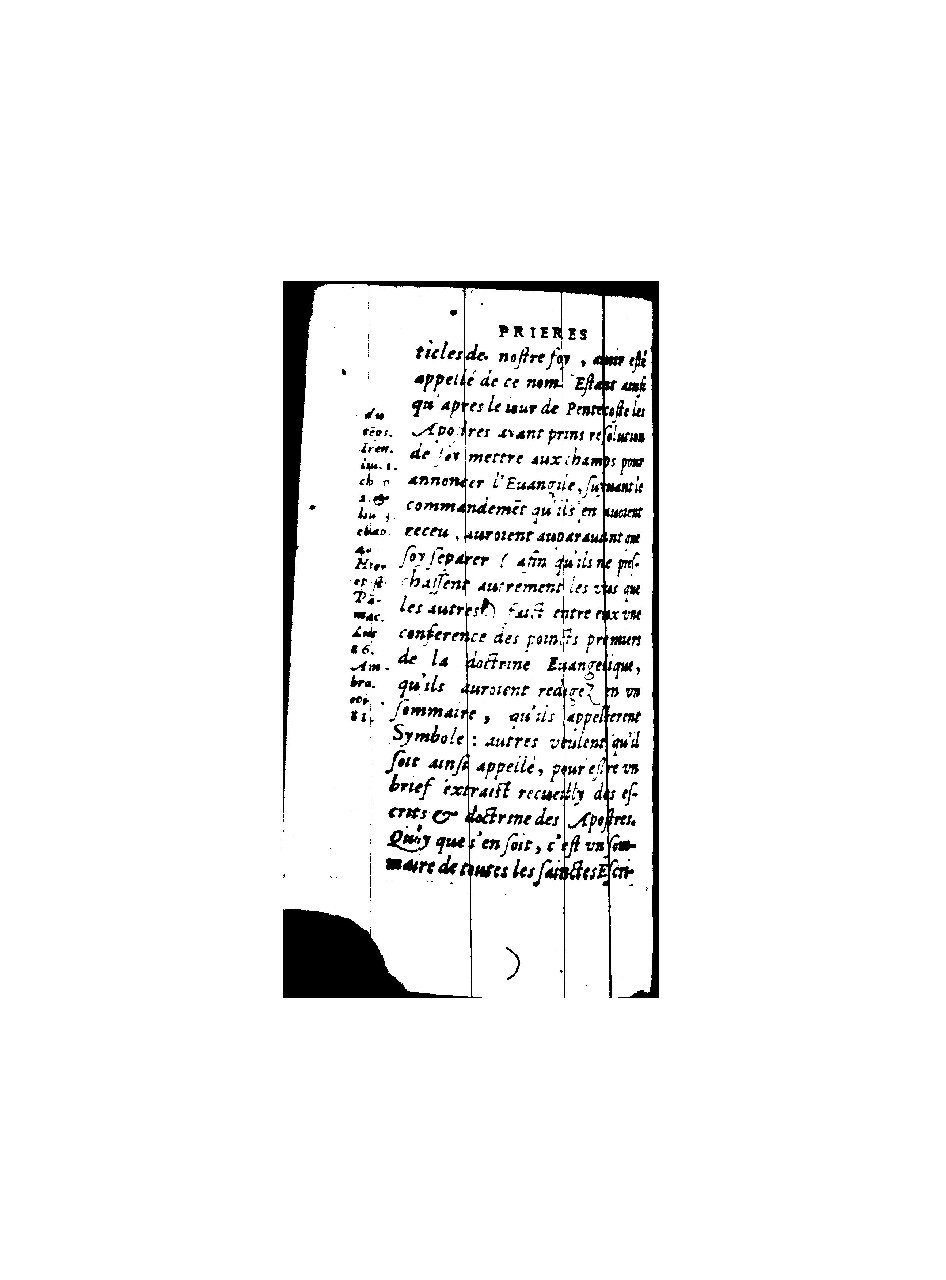 PRIERES
ticles de nostre foy, auoir esté
appellé de ce nom. Estant ainsi
qu'apres le iour de Pentecoste les
Apostres ayant prins resolution
de soy mettre aux champs pour
annoncer l'Euangile, suyuant le
commandemẽt qu'ils en auoient
receu, auroient auparauant que
soy separer (afin qu'ils ne pres-
chassent autrement les vns que
les autres) faict entre eux vne
conference des poincts premiers
de la doctrine Euangelique,
qu'ils auroient redigez en vn
sommaire, qu'ils appellerent
Symbole : autres veulent qu'il
soit ainsi appellé, pour estre vn
brief extraict recueilly des es-
crits & doctrine des Apostres.
Quoy que s'en soit, c'est vn som-
maire de toutes les sainctes Escri-
Iren.
2. &
Hier
Pa-
mac.
86.
Am-
bro.
81.